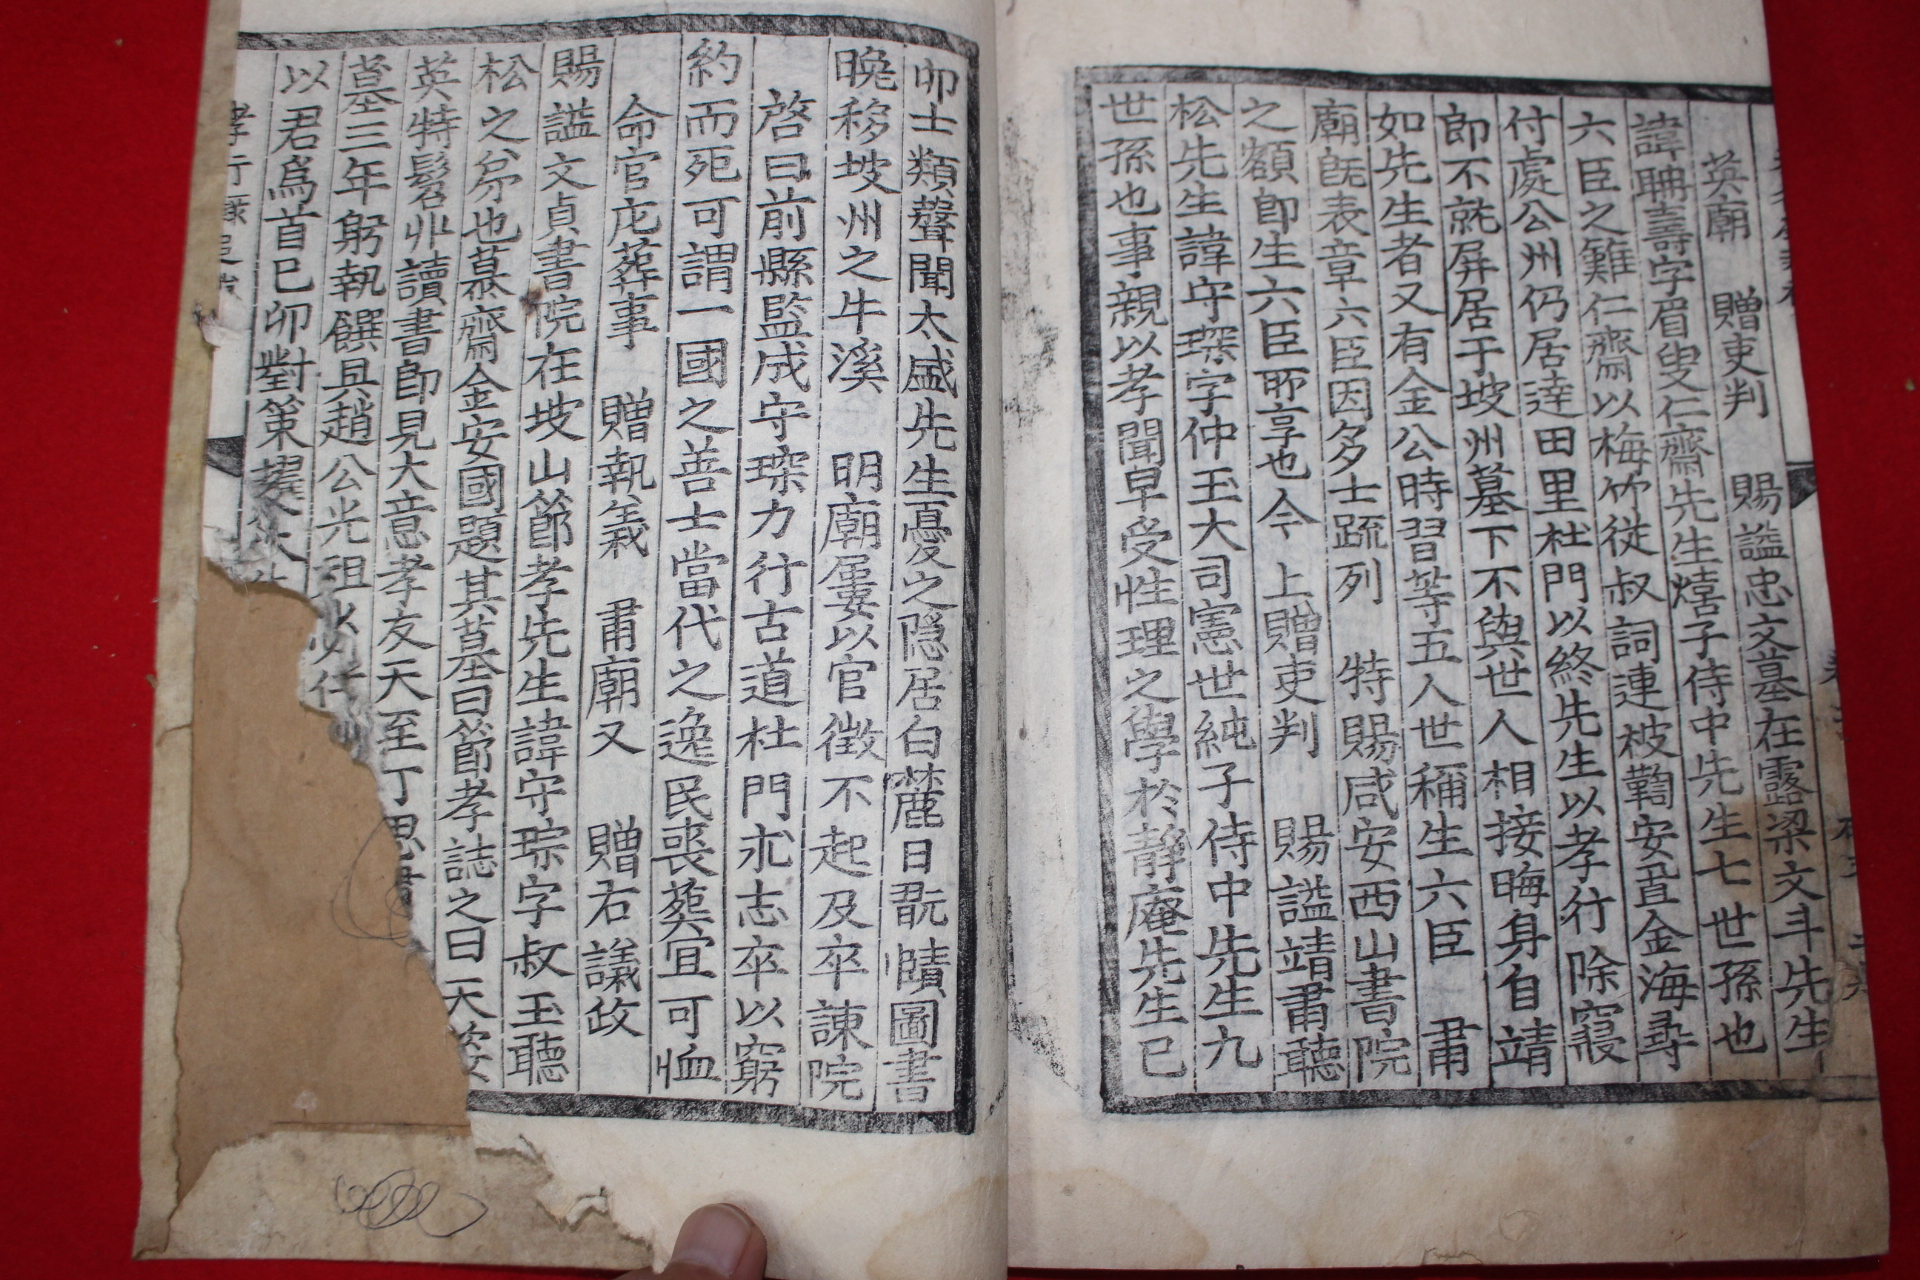 英廟 贈吏判 賜謚忠文墓在露梁文斗先生
諱聃壽字眉叟仁齋先生熺子侍中先生七世孫也
六臣之難仁齋以梅竹從叔詞連被鞫安置金海尋
付處公州仍居達田里杜門以終先生以孝行除寢
郎不就屛居于坡州墓下不與世人相接晦身自靖
如先生者又有金公時習等五人世稱生六臣 肅
廟旣表章六臣因多士疏列 特賜咸安西山書院
之額卽生六臣所享也今 上贈吏判 賜謚靖肅聽
松先生諱守琛字仲玉大司憲世純子侍中先生九
世孫也事親以孝聞早受性理之學於靜庵先生己
卯士類聲聞太盛先生憂之隱居白麓日翫賾圖書
晩移坡州之牛溪 明廟屢以官徵不起及卒諫院
啓曰前縣監成守琛力行古道杜門求志卒以窮
約而死可謂一國之善士當代之逸民喪葬宜可恤
命官庀葬事 贈執義 肅廟又 贈右議政
賜謚文貞書院在坡山節孝先生諱守琮字叔玉聽
松之弟也慕齋金安國題其墓曰節孝誌之曰天姿
英特髫丱讀書卽見大意孝友天至丁思肅
墓三年躬執饌具趙公光祖必偁
以君爲首己卯對策擢第
孝行錄